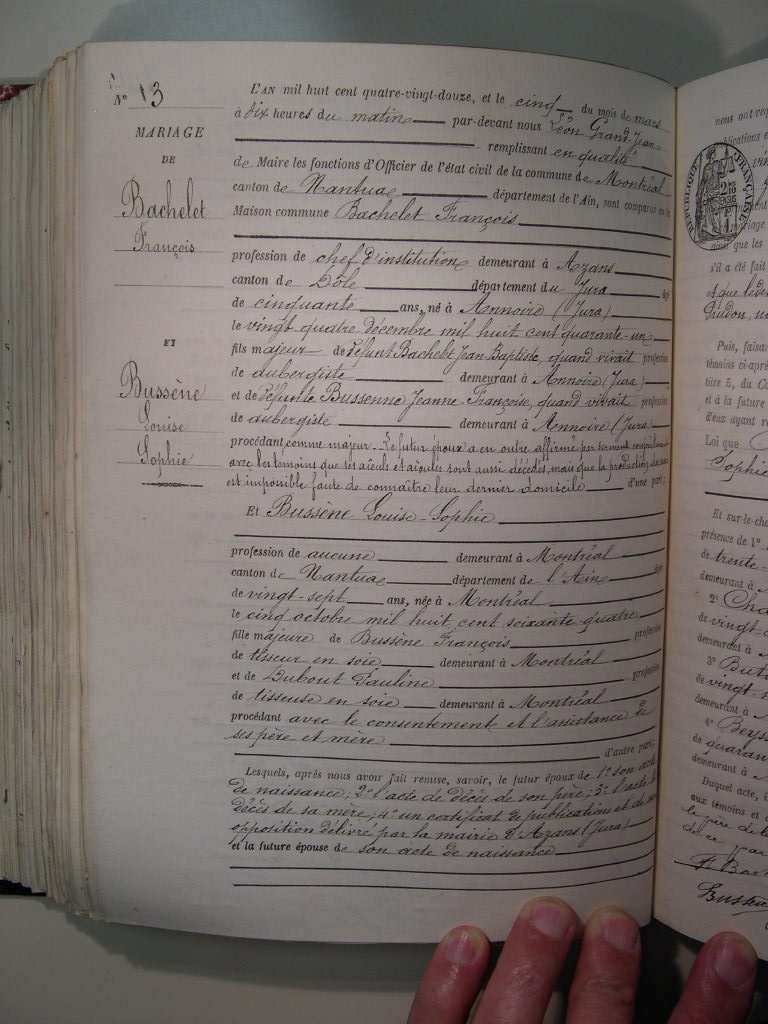 N° 13
MARIAGE
DE
Bachelet
François
ET
Bussène
Louise
Sophie
L'AN mil huit cent quatre-vingt-douze, et le cinq du mois de mars
à dix heures du matin par-devant nous Léon Grand-Jean
remplissant en qualité
de Maire les fonctions d'Officier de l'état civil de la commune de Montréal
canton de Nantua département de l'Ain, sont comparus en la
Maison commune Bachelet François
profession de chef d'institution demeurant à Azans
canton de Dôle département du Jura
de cinquante ans, né à Annoire (Jura)
le vingt quatre décembre mil huit cent quarante-un
fils majeur de défunt Bachelet Jean Baptiste, quand vivait profession
de aubergiste demeurant à Annoire (Jura)
et de défunte Bussenne Jeanne Françoise, quand vivait profession
de aubergiste demeurant à Annoire (Jura)
procédant comme majeur. Le futur époux a en outre affirmé par serment
avec les témoins que ses aïeuls et aïeules sont aussi décédés, mais que la production
est impossible faute de connaître leur dernier domicile d'une part;
Et Bussène Louise-Sophie
profession de aucune demeurant à Montréal
canton de Nantua département de l'Ain
de vingt-sept ans, née à Montréal
le cinq octobre mil huit cent soixante quatre
fille majeure de Bussène François profession
de tisseur en soie demeurant à Montréal
et de Dubout Pauline profession
de tisseuse en soie demeurant à Montréal
procédant avec le consentement et l'assistance de
ses père et mère
d'autre part;
Lesquels, après nous avoir fait remise, savoir, le futur époux de 1° son acte
de naissance; 2° l'acte de décès de son père; 3° l'acte de
décès de sa mère; 4° un certificat de publications et de non
opposition délivré par la mairie d'Azans (Jura)
et la future épouse de son acte de naissance
nous ont
RÉPUBLIQUE FRANÇAISE
que les
s'il a été fait
et que les
Puis, faisant
témoins ci-après
titre 5, du Co
et à la future
Loi que
Sophie
Et sur-le-cha
présence de 1°
de trente-
demeurant à
2° Cha
de vingt-
demeurant à
3°
de vingt-
demeurant à
4° Beys
de quaran
demeurant à
Duquel acte,
aux témoins et
le père de